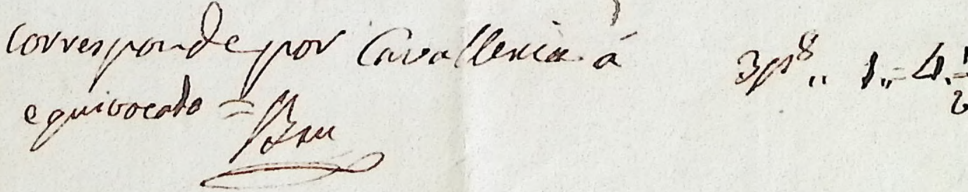 corresponde por Cavalleria á 3 p.s 8 ,, 1 ,, = 4 . 1/2
equivocado = Bru